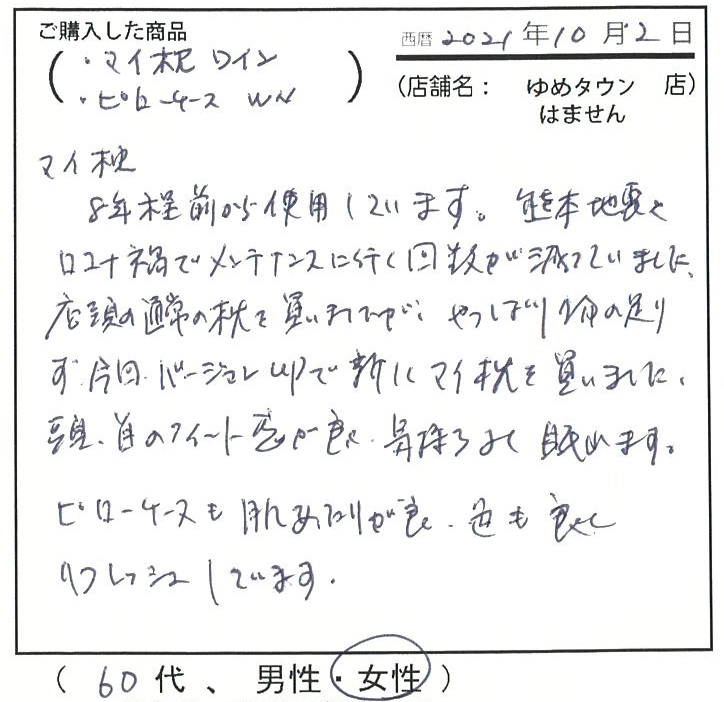 ご購入した商品
西暦 2021年10月2日
(・マイ枕 ワイン
・ピローケース WN)
(店舗名: ゆめタウン 店)
はません
マイ枕
8年程前から使用しています。熊本地震と
コロナ禍でメンテナンスに行く回数が減っていました、
店頭の通常の枕を買いましたが、やっぱり物足り
ず今回バージョンUPで新しくマイ枕を買いました、
頭、首のフィット感が良く、気持ちよく眠れます。
ピローケースも肌あたりが良く、色も良く
リフレッシュしています.
(60代、男性・女性)